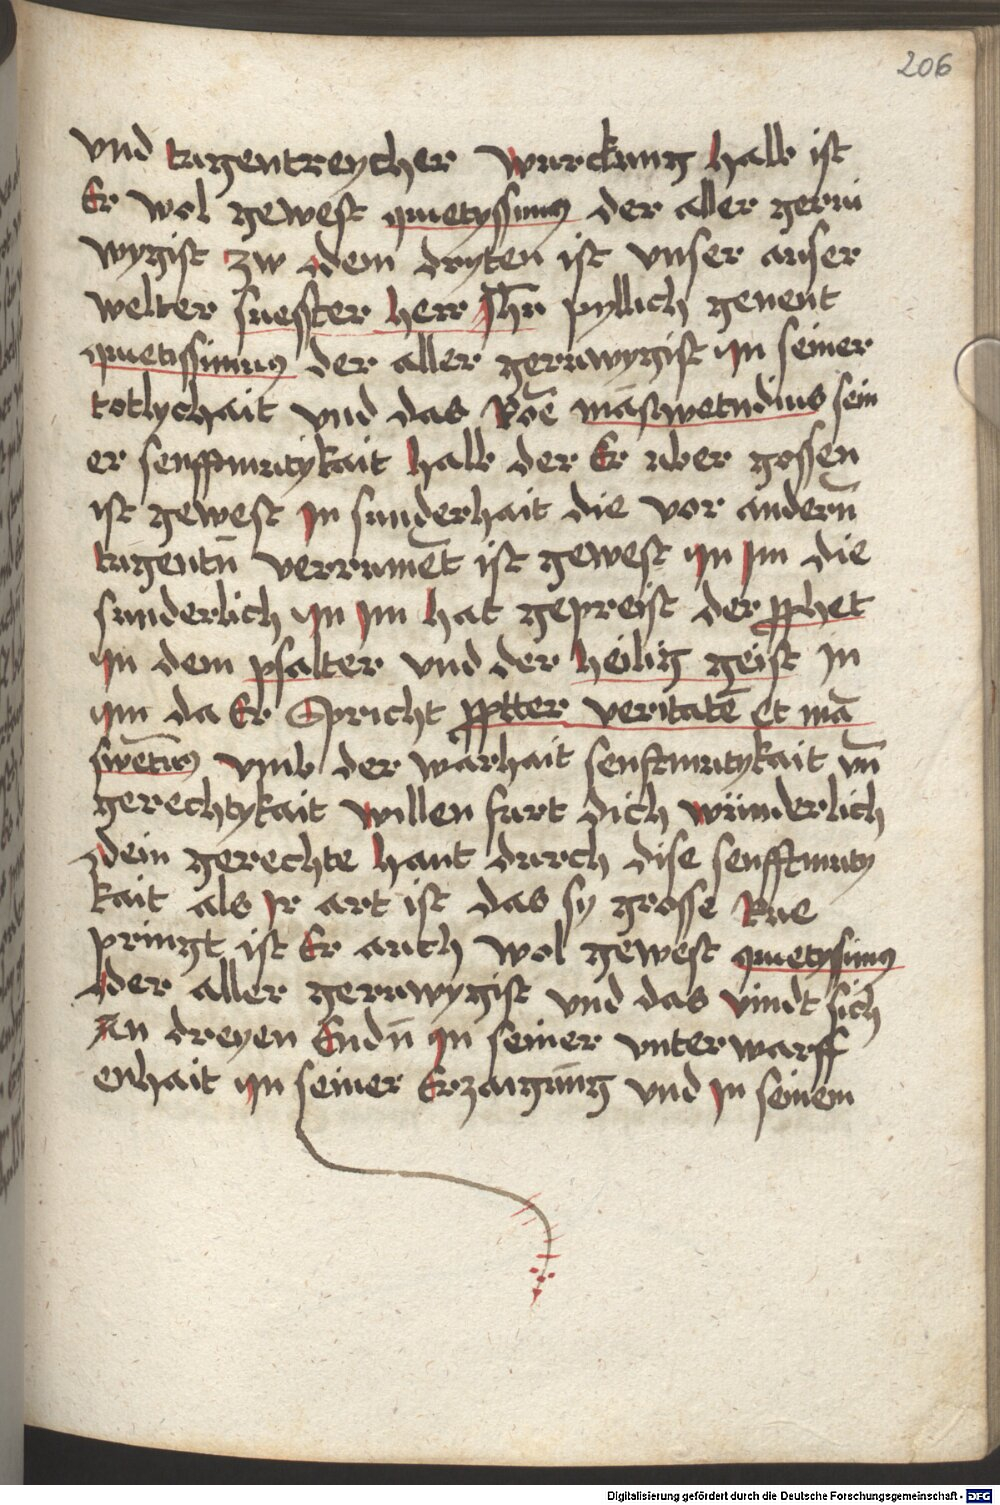 206
vnd tugentreycher wurckung halb ist
Er wol gewest quietyssimus der aller gerui
wygist zw dem dryten ist vnser auser
welter suesster herr Jhu pyllich genent
quietissimus der aller geruwygist jn seiner
totlychait vnd das Roe māswetudinis sein
er senfftmutykait halb der Er uber gossen
ist gewest jn sunderhait die vor andern̄
tugentn̄ verrumēt ist gewest jn jm die
sunderlich jn jm hat gepreist der pphet
jn dem psalter vnd der heilig geist jn
jm da Er Spricht ppter veritatē et mā
swetuē vmb der warhait senftmutykait vn̄
gerechtykait willen furt dich wunderlich
dein gerechte hant durch dise senfftmuty
kait als jr art ist das sy grosse Rue
pringt ist Er auch wol gewest quietyssimus
der aller geruwygist vnd das vindt sich
An dreyen Endn̄ jn seiner vnterwarff
enhait jn seiner Erzaigung vnd jn seinem
Digitalisierung gefördert durch die Deutsche Forschungsgemeinschaft - DFG